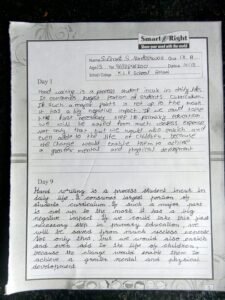 Smart Right
Share your word with the world
Name
Age 13
School/College K.L.E School
Day 1
Hand writing is a process student incut in daily life.
It consumes largest portion of students curriculum.
If such a major part is not up to the mark
it has a big negative impact. If we could take
this necessary step in primary education,
we will be saved from much useless exercise
not only that but we would also enrich and
even add to the life of children because
the change would enable them to achieve
a greater mental and physical development.
Day 9
Hand writing is a process student incut in
daily life it consumes largest portion of
students curriculum if such a major part
is not up to the mark it has a big
negative impact if we could take this just
necessary step in primary education, we
will be saved from much useless exercise
not only that but we would also enrich
and even add to the life of children
because the change would enable them to
achieve a greater mental and physical
development